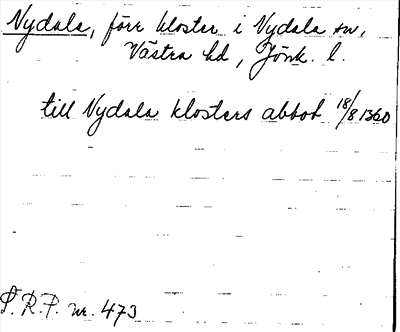 Nydala, förr kloster i Nydala sn,
Västra hd, Jönk. l.
till Nydala klosters abbot 18/8 1360
P.R.P. nr. 473